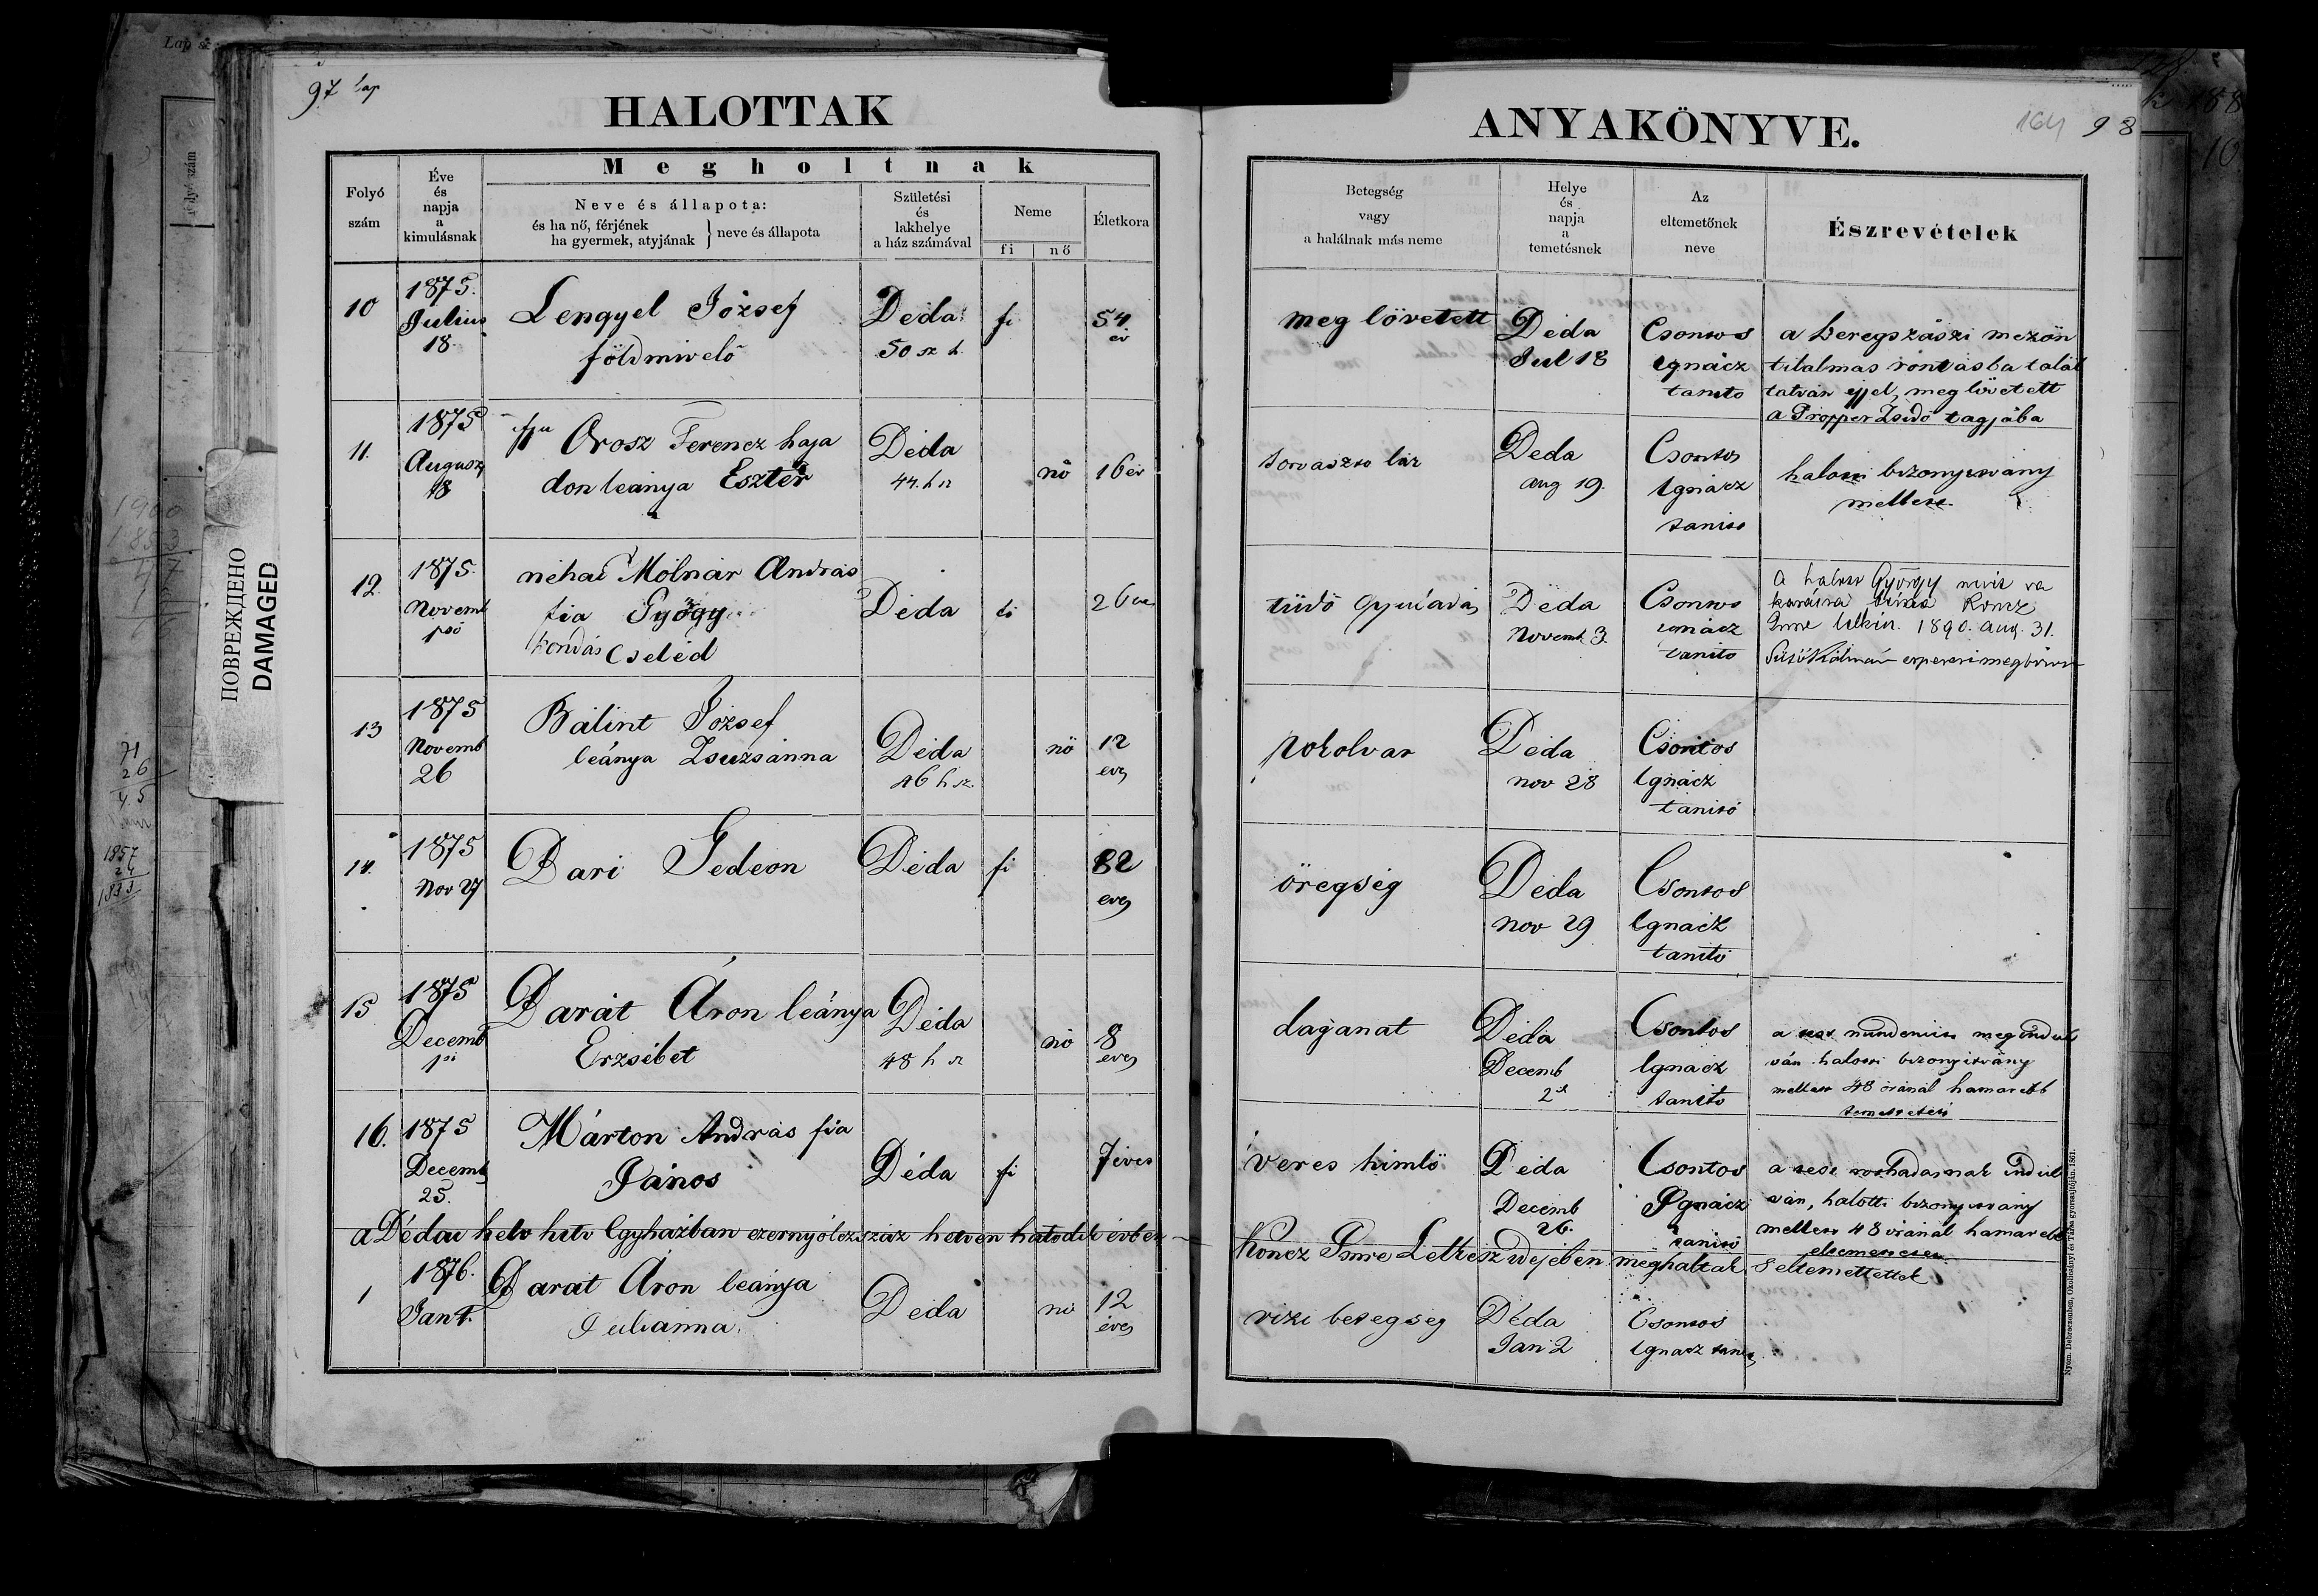 97 lap
HALOTTAK
Folyó
szám
Éve
és
napja
a
kimulásnak
Megholtnak
Neve és állapota:
és ha nő, férjének
ha gyermek, atyjának } neve és állapota
Születési
és
lakhelye
a ház számával
Neme
fi nő
Életkora
10
1875.
Julius
18.
Lengyel József
földmivelő
Déda
50 sz h.
fi
54
év
11.
1875
Auguszt
18
ifju Orosz Ferencz haja
don leánya Eszter
Déda
44. h sz
nő
16 év
12.
1875.
Novemb
1ső
néhai Molnár András
fia György
kondás Cseléd
Déda
fi
26 éves
13
1875
Novemb
26
Bálint József
leánya Zsuzsánna
Déda
46 h sz.
nő
12
éves
14.
1875
Nov 27
Dari Gedeon
Déda
fi
82
éves
15
1875
Decemb
1ső
Darát Áron leánya
Erzsébet
Déda
48 h sz
nő
8
éves
16.
1875
Decemb
25.
Márton András fia
János
Déda
fi
7 éves
a Dédai helv hitv Egyházban ezernyolczszáz hetven hatodik évben
1
1876.
Jan 1.
Darát Áron leánya
Julianna.
Deda
nő
12
éves
ПОВРЕЖДЕНО
DAMAGED
ANYAKÖNYVE.
164 98
Betegség
vagy
a halálnak más neme
Helye
és
napja
a
temetésnek
Az
eltemetőnek
neve
Észrevételek
meg lövetett
Déda
Jul 18
Csontos
Ignácz
tanito
a beregszászi mezőn
tilalmas rontásba talál
tatván éjjel, meg lövetett
a Propper Zsidó tagjába
sorvaszto láz
Deda
aug 19.
Csontos
Ignácz
tanito
halotti bizonyitvány
mellett.
tüdő gyuladás
Déda
Novemb. 3.
Csontos
Ignácz
tanito
A halott György nevét
Koncz
Imre lelkész. 1890. aug. 31.
Sütő Kálmán esperesi megbizott
pokolvar
Déda
nov 28
Csontos
Ignácz
tanitó
öregség
Déda
nov 29
Csontos
Ignácz
tanitó
daganat
Déda
Decemb
2á
Csontos
Ignácz
tanito
a test megindul
ván halotti bizonyitvány
mellett 48 óránál hamarább
temettetett
veres himlő
Déda
Decemb
26.
Csontos
Ignácz
tanitó
a test rothadasnak indul
ván, halotti bizonyitvány
mellett 48 óránál hamarább
eltemettetett
Koncz Imre Lelkész idejében meghaltak s eltemettettek
vizi betegség
Déda
Jan 2
Csontos
Ignacz tanitó
Nyom. Debreczenben, Okolicsányi és Társa gyorssajtóján. 1861.